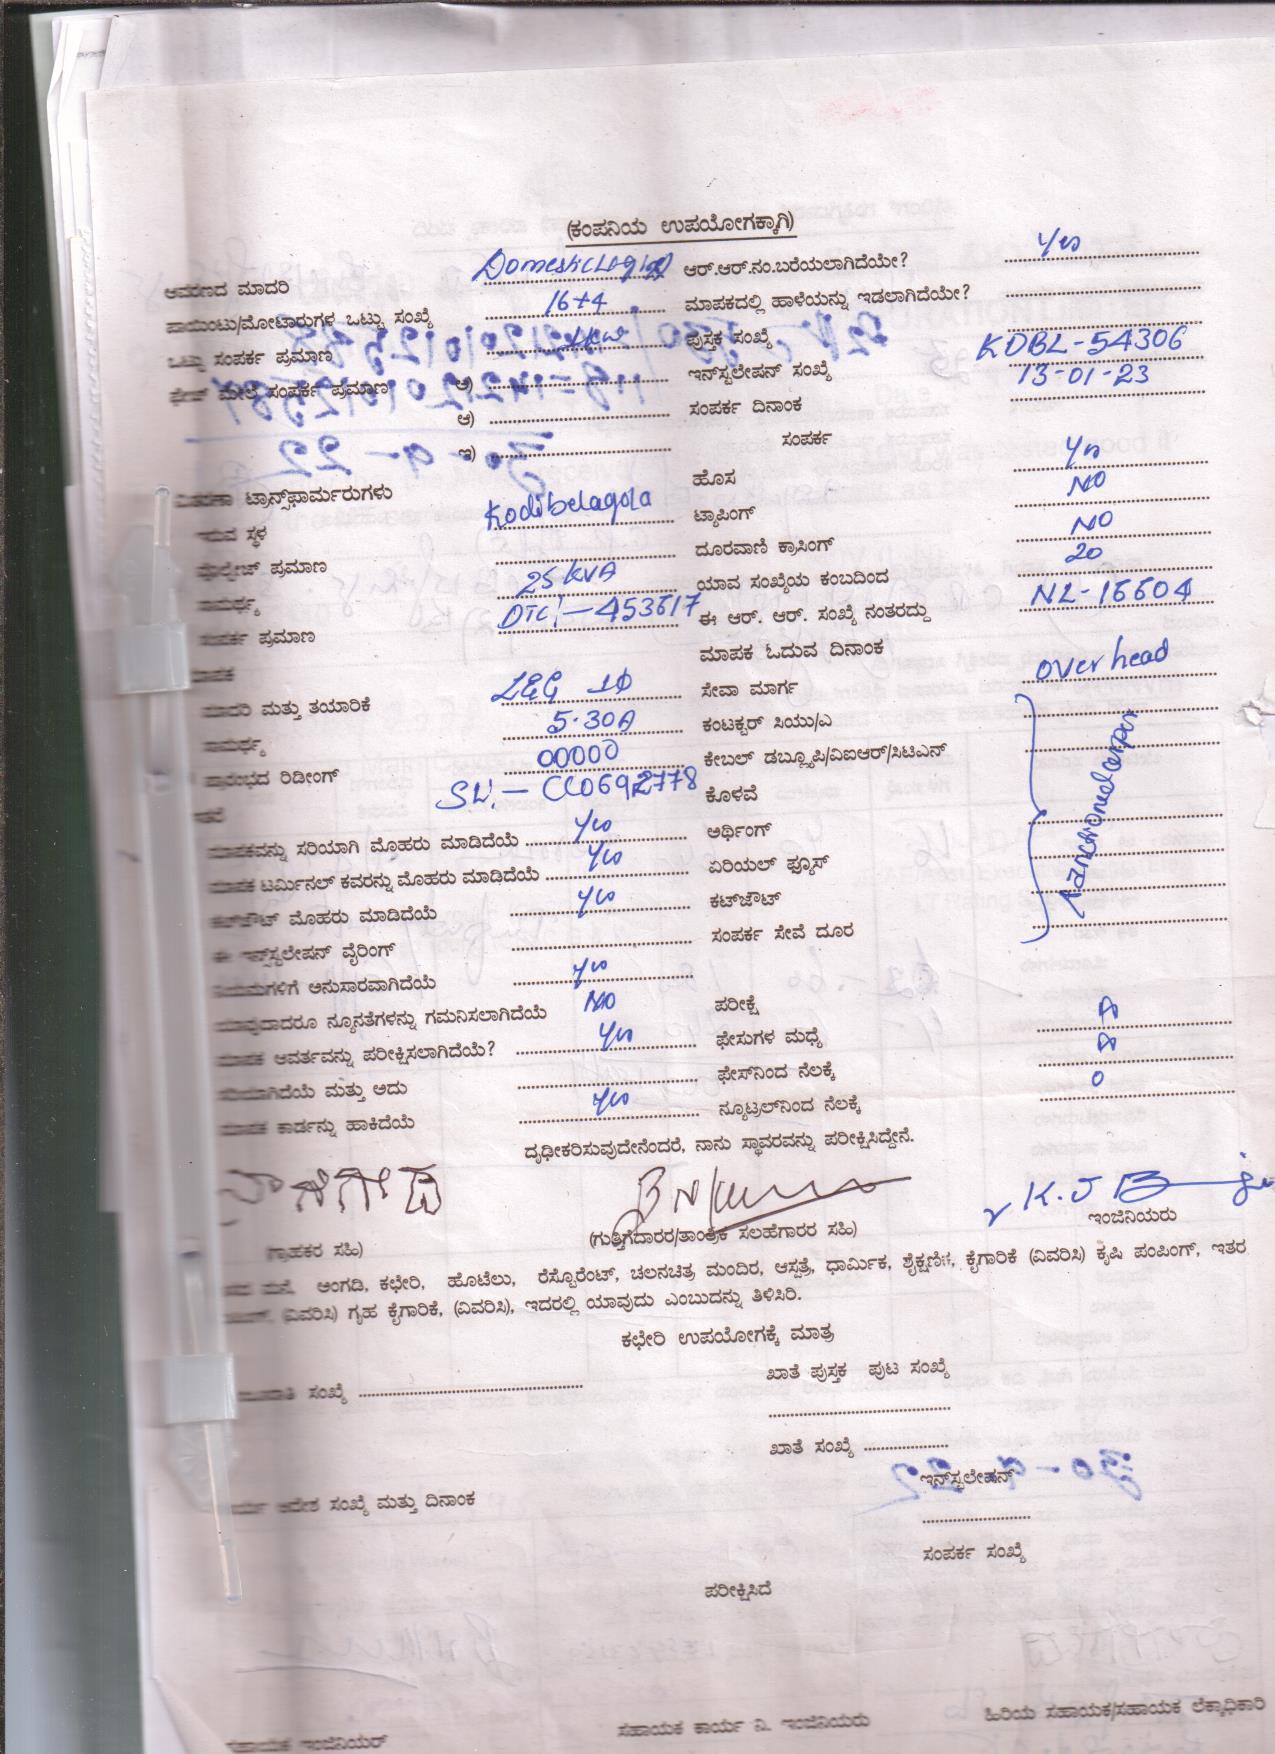 (ಕಂಪನಿಯ ಉಪಯೋಗಕ್ಕಾಗಿ)
ಆವರಣದ ಮಾದರಿ Domestic ಆರ್.ಆರ್.ನಂ.ಬರೆಯಲಾಗಿದೆಯೇ? Yes
ಪಾಯಿಂಟು/ಮೋಟಾರುಗಳ ಒಟ್ಟು ಸಂಖ್ಯೆ 16+4 ಮಾಪಕದಲ್ಲಿ ಹಾಳೆಯನ್ನು ಇಡಲಾಗಿದೆಯೇ?
ಒಟ್ಟು ಸಂಪರ್ಕ ಪ್ರಮಾಣ 1kw ಪುಸ್ತಕ ಸಂಖ್ಯೆ
ಫೇಜ್ ಮೇಲೆ ಸಂಪರ್ಕ ಪ್ರಮಾಣ ಅ) ಇನ್‌ಸ್ಟಲೇಷನ್ ಸಂಖ್ಯೆ KDBL-54306
ಆ) ಸಂಪರ್ಕ ದಿನಾಂಕ 13-01-23
ಇ) ಸಂಪರ್ಕ
ವಿತರಣಾ ಟ್ರಾನ್ಸ್‌ಫಾರ್ಮರುಗಳು ಹೊಸ Yes
ಇರುವ ಸ್ಥಳ Kodibelagola ಟ್ಯಾಪಿಂಗ್ NO
ವೋಲ್ಟೇಜ್ ಪ್ರಮಾಣ ದೂರವಾಣಿ ಕ್ರಾಸಿಂಗ್ NO
ಸಾಮರ್ಥ್ಯ 25 KVA ಯಾವ ಸಂಖ್ಯೆಯ ಕಂಬದಿಂದ 20
ಸಂಪರ್ಕ ಪ್ರಮಾಣ DTC:-453617 ಈ ಆರ್. ಆರ್. ಸಂಖ್ಯೆ ನಂತರದ್ದು NL-16604
ಮಾಪಕ ಮಾಪಕ ಓದುವ ದಿನಾಂಕ
ಮಾದರಿ ಮತ್ತು ತಯಾರಿಕೆ L&G 1Φ ಸೇವಾ ಮಾರ್ಗ overhead
ಸಾಮರ್ಥ್ಯ 5-30A ಕಂಟಕ್ಟರ್ ಸಿಯು/ಎ
ಪ್ರಾರಂಭದ ರಿಡೀಂಗ್ 00000 ಕೇಬಲ್ ಡಬ್ಲ್ಯೂಪಿ/ವಿಐಆರ್/ಸಿಟಿಎನ್
SL:- CC0692778 ಕೊಳವೆ
ಮಾಪಕವನ್ನು ಸರಿಯಾಗಿ ಮೊಹರು ಮಾಡಿದೆಯೆ Yes ಅರ್ಥಿಂಗ್
ಮಾಪಕ ಟರ್ಮಿನಲ್ ಕವರನ್ನು ಮೊಹರು ಮಾಡಿದೆಯೆ Yes ಏರಿಯಲ್ ಫ್ಯೂಸ್
ಕಟ್‌ಔಟ್ ಮೊಹರು ಮಾಡಿದೆಯೆ Yes ಕಟ್‌ಔಟ್
ಈ ಇನ್ಸ್‌ಸ್ಟಲೇಷನ್ ವೈರಿಂಗ್ ಸಂಪರ್ಕ ಸೇವೆ ದೂರ
ನಿಯಮಗಳಿಗೆ ಅನುಸಾರವಾಗಿದೆಯೆ Yes
ಯಾವುದಾದರೂ ನ್ಯೂನತೆಗಳನ್ನು ಗಮನಿಸಲಾಗಿದೆಯೆ NO ಪರೀಕ್ಷೆ
ಮಾಪಕ ಆವರ್ತವನ್ನು ಪರೀಕ್ಷಿಸಲಾಗಿದೆಯೆ? Yes ಫೇಸುಗಳ ಮಧ್ಯೆ
ಸರಿಯಾಗಿದೆಯೆ ಮತ್ತು ಅದು ಫೇಸ್‌ನಿಂದ ನೆಲಕ್ಕೆ
ಮಾಪಕ ಕಾರ್ಡನ್ನು ಹಾಕಿದೆಯೆ Yes ನ್ಯೂಟ್ರಲ್‌ನಿಂದ ನೆಲಕ್ಕೆ 0
ದೃಢೀಕರಿಸುವುದೇನೆಂದರೆ, ನಾನು ಸ್ಥಾವರವನ್ನು ಪರೀಕ್ಷಿಸಿದ್ದೇನೆ.
K.J
(ಗ್ರಾಹಕರ ಸಹಿ) (ಗುತ್ತಿಗೆದಾರರ/ತಾಂತ್ರಿಕ ಸಲಹೆಗಾರರ ಸಹಿ) ಇಂಜಿನಿಯರು
ಮನೆ, ಅಂಗಡಿ, ಕಛೇರಿ, ಹೊಟೆಲು, ರೆಸ್ಟೊರೆಂಟ್, ಚಲನಚಿತ್ರ ಮಂದಿರ, ಆಸ್ಪತ್ರೆ, ಧಾರ್ಮಿಕ, ಶೈಕ್ಷಣಿಕ, ಕೈಗಾರಿಕೆ (ವಿವರಿಸಿ) ಕೃಷಿ ಪಂಪಿಂಗ್, ಇತರ
(ವಿವರಿಸಿ) ಗೃಹ ಕೈಗಾರಿಕೆ, (ವಿವರಿಸಿ), ಇದರಲ್ಲಿ ಯಾವುದು ಎಂಬುದನ್ನು ತಿಳಿಸಿರಿ.
ಕಛೇರಿ ಉಪಯೋಗಕ್ಕೆ ಮಾತ್ರ
ಸಂಖ್ಯೆ ಖಾತೆ ಪುಸ್ತಕ ಪುಟ ಸಂಖ್ಯೆ
ಖಾತೆ ಸಂಖ್ಯೆ
ಇನ್‌ಸ್ಟಲೇಷನ್
ಆದೇಶ ಸಂಖ್ಯೆ ಮತ್ತು ದಿನಾಂಕ
ಸಂಪರ್ಕ ಸಂಖ್ಯೆ
ಪರೀಕ್ಷಿಸಿದೆ
ಸಹಾಯಕ ಇಂಜಿನಿಯರ್ ಸಹಾಯಕ ಕಾರ್ಯ ನಿ. ಇಂಜಿನಿಯರು ಹಿರಿಯ ಸಹಾಯಕ/ಸಹಾಯಕ ಲೆಕ್ಕಾಧಿಕಾರಿ